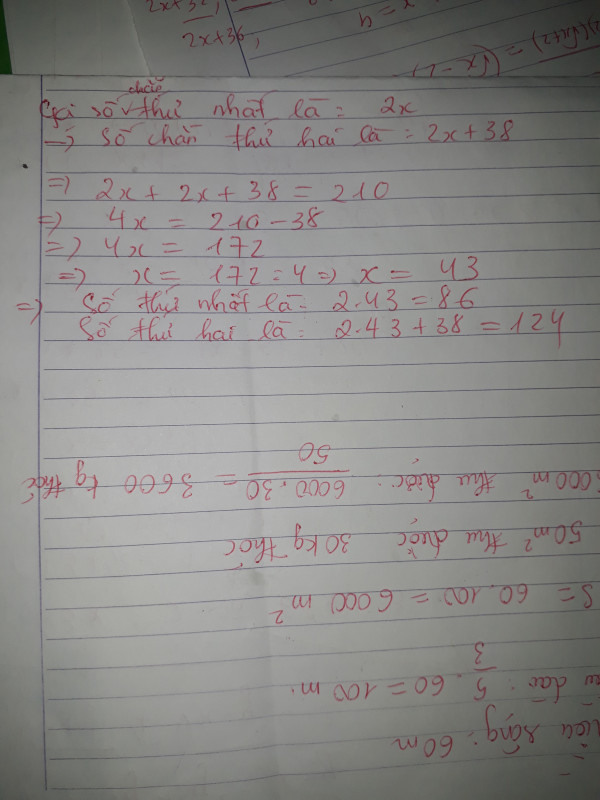 2x+36;
x = 4
Gọi số chẵn thứ nhất là: 2x
→ Số chẵn thứ hai là: 2x+38
=> 2x + 2x + 38 = 210
=> 4x = 210-38
=> 4x = 172
=> x = 172:4 => x = 43
=> Số thứ nhất là: 2.43 = 86
Số thứ hai là: 2.43+38 = 124
rộng: 60m
dài: 5/3 . 60 = 100 m.
S = 60.100 = 6000 m²
50m² thu được 30kg thóc
000m² thu được: 6000.30/50 = 3600 kg thóc